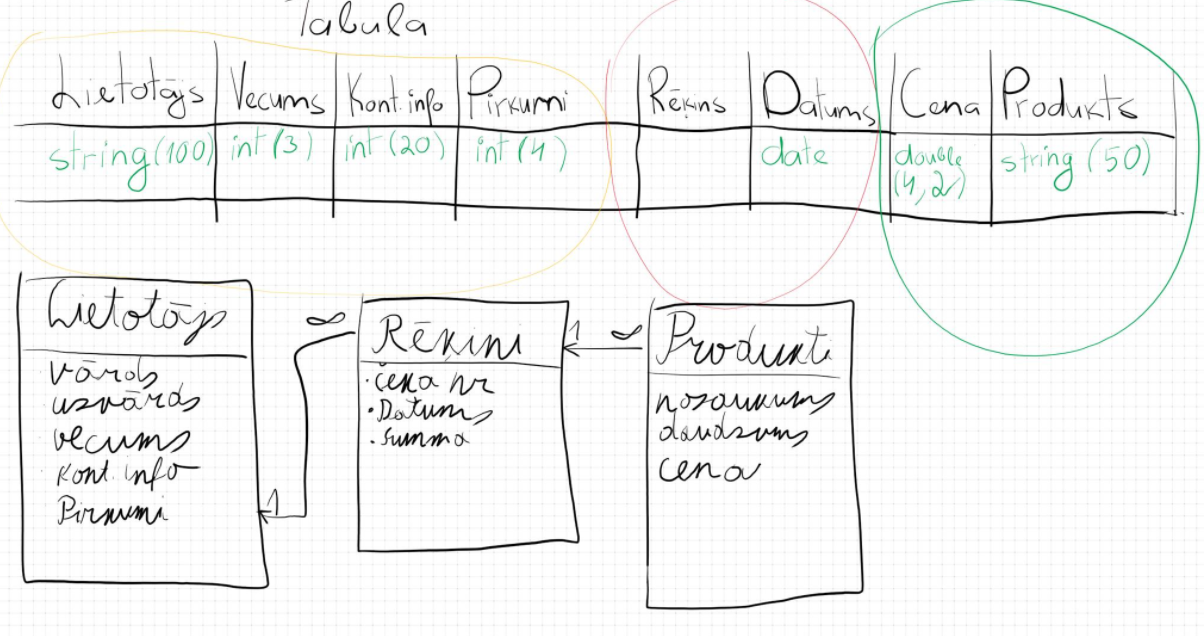 Tabula
Lietotājs Vecums Kont. info Pirkumi Rēķins Datums Cena Produkts
string (100) int (3) int (20) int (4) date double (4,2) string (50)
Lietotājs
vārds
uzvārds
vecums
Kont. info
Pirkumi
∞
1
Rēķini
· čeka nr
· Datums
· summa
1 ∞
Produkti
nosaukums
daudzums
cena